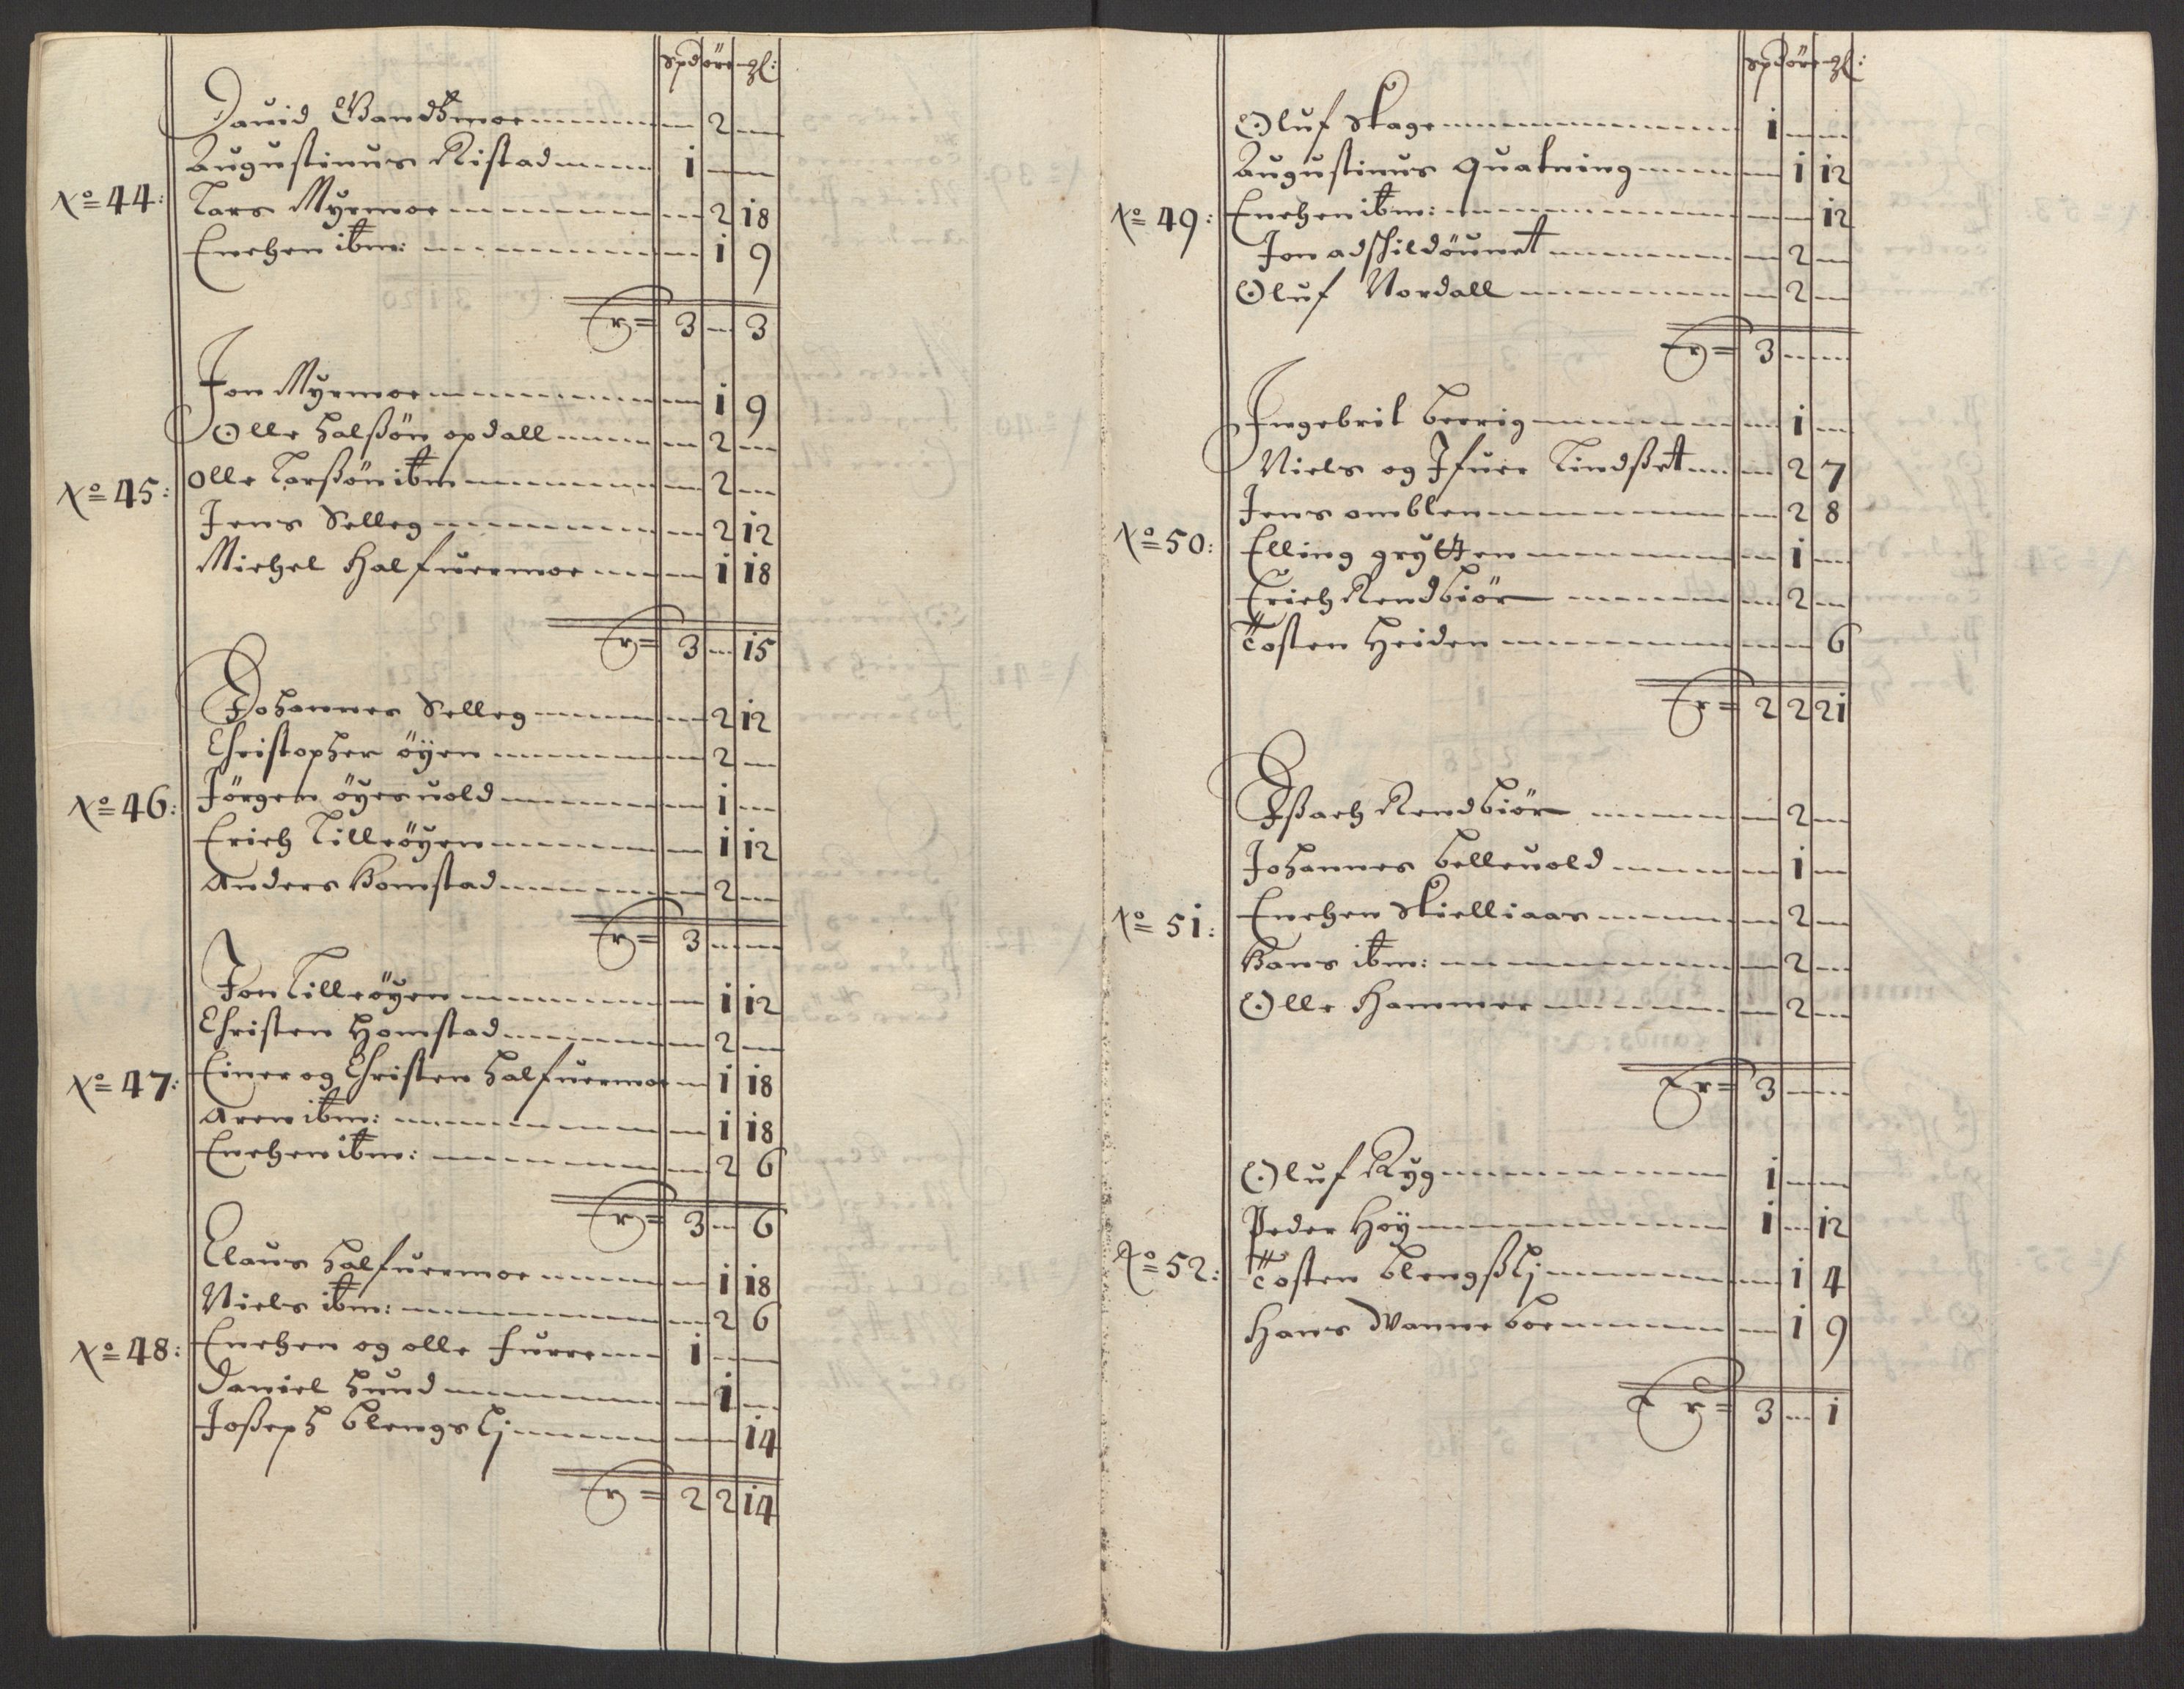 spd öre ql:
Dauid Wandhmoe 2
Augustinus Kistad 1
No 44: Lars Myrmoe 2 18
Enchen ibm: 1 9
3 3
Jon Myrmoe 1 9
Olle halßön opdall 2
No 45: Olle Larßön ibm 2
Jens Selleg 2 12
Michel halfuermoe 1 18
3 15
Johannes Selleg 2 12
Christopher öÿen 2
No 46: Jörgen öyesuold 1
Erich Lilleöyen 1 12
Anders Homstad 2
3
Jon Lilleöyen 1 12
Christen Homstad 2
No 47: Einer og Christen halfuermoe 1 18
Aren ibm: 1 18
Enchen ibm: 2 6
3 6
Claus halfuermoe 1 18
Niels ibm: 2 6
No 48: Enchen og olle furre 1
Daniel hund 1
Joßeph blengslj 14
2 2 14
spd öre ql:
Oluf Skage 1
Augustinus Quatning 1 12
No 49: Enchen ibm: 12
Jon adschildöunet 2
Oluf Nordall 2
3
Ingebrit berrig 1
Niels og Ifuer Lindßet 2 7
Jens omblen 2 8
No 50: Elling grytten 1
Erich Rendbiör 2
Tosten Heiden 6
2 2 21
Ißach Rendbiör 2
Johannes belleuold 1
No 51: Enchen Skielliaas 2
Hans ibm: 2
Olle Hammer 2
3
Oluf Ryg 1
Peder Höÿ 1 12
No 52: Tosten blengßlj 1 4
Hans Wanneboe 1 9
3 1